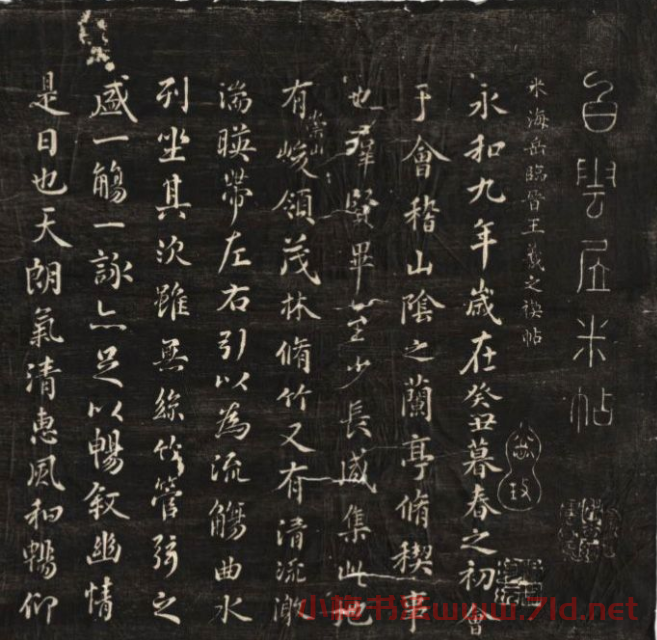 白雲居米帖
米海岳臨晉王羲之禊帖
永和九年歲在癸丑暮春之初會
于會稽山陰之蘭亭脩稧事
也羣賢畢至少長咸集此地
有崇山峻領茂林脩竹又有清流激
湍暎帶左右引以為流觴曲水
列坐其次雖無絲竹管弦之
盛一觴一詠亦足以暢敘幽情
是日也天朗氣清惠風和暢仰
书法www.7ld.net